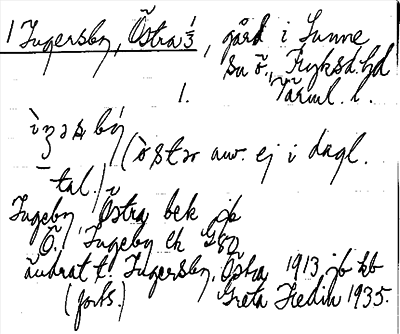 1 Ingersby, Östra 1/3, gård i Sunne
sn ö., Fryksd. hd
1. Värml. l.
ìŋəs bý
(östər anv. ej i dagl.
tal.) i
Ingeby, Östra bek jb
Ö. Ingeby ek G80
ändrat t. Ingersby, Östra 1913 jb kb
(forts.) Greta Hedin 1935.